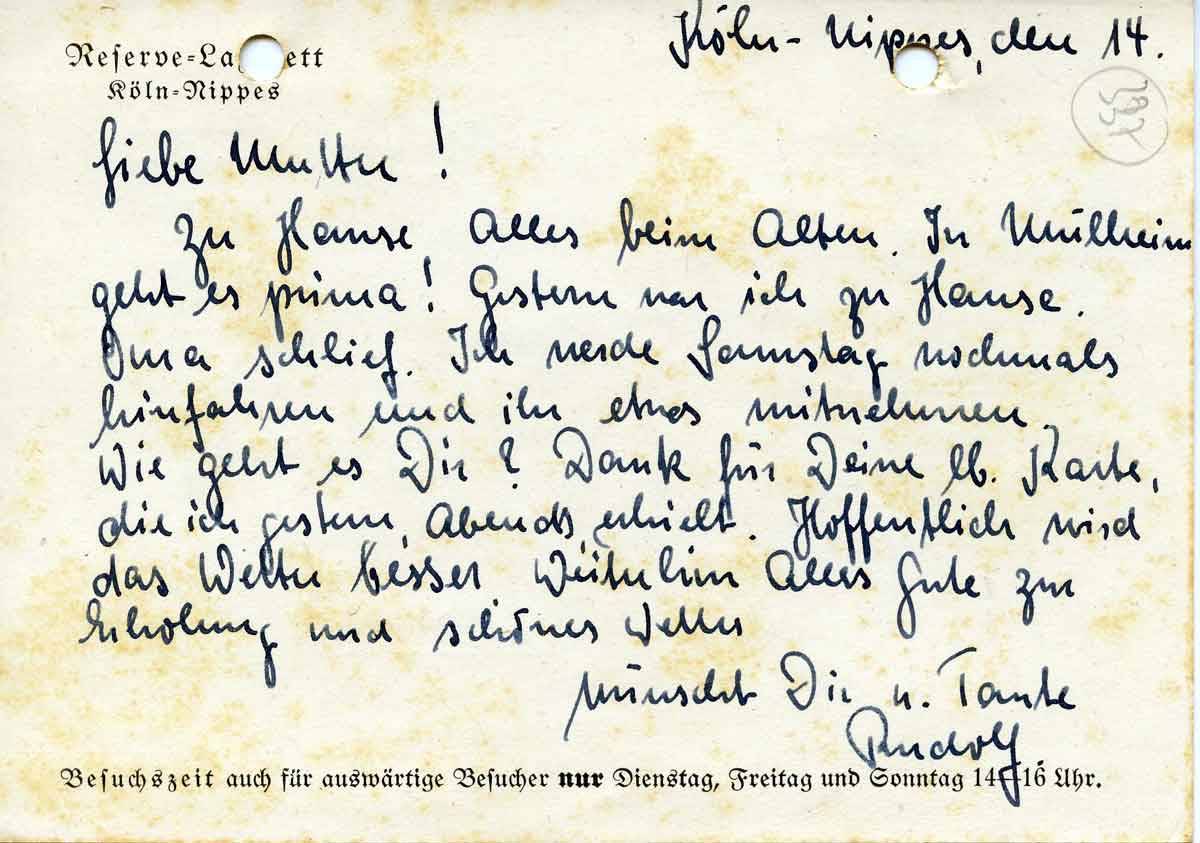 Reserve-La ett
Köln-Nippes
Köln-Nippes, den 14.
Liebe Mutter!
Zu Hause Alles beim Alten. In Mülheim
geht es prima! Gestern war ich zu Hause.
Oma schlief. Ich werde Samstag nochmals
hinfahren und ihr etwas mitnehmen.
Wie geht es Dir? Dank für Deine lb. Karte,
die ich gestern, Abends, erhielt. Hoffentlich wird
das Wetter besser. Weiterhin Alles Gute zur
Erholung und schönes Wetter
wünscht Dir u. Tante
Rudolf.
Besuchszeit auch für auswärtige Besucher nur Dienstag, Freitag und Sonntag 14–16 Uhr.